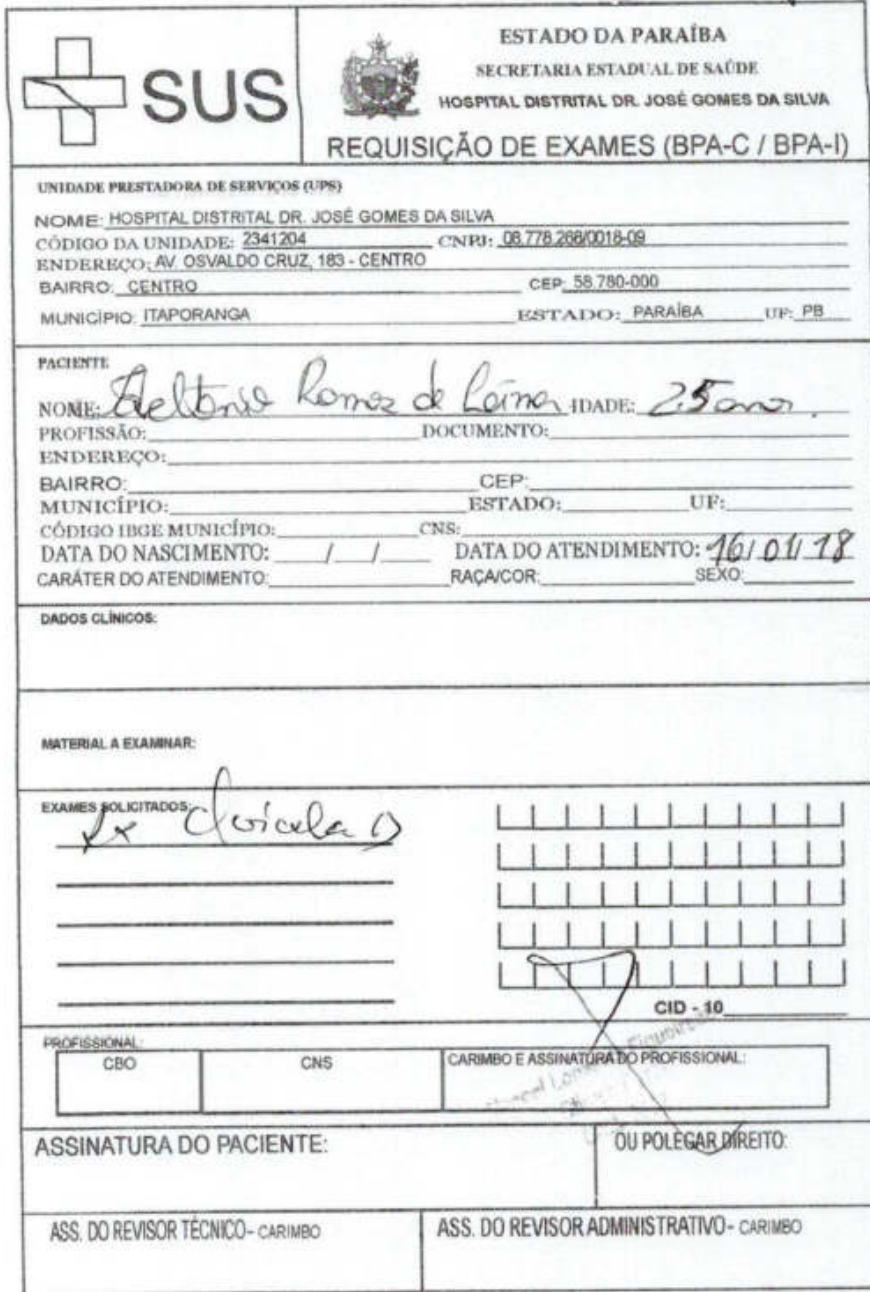 SUS
ESTADO DA PARAÍBA
SECRETARIA ESTADUAL DE SAÚDE
HOSPITAL DISTRITAL DR. JOSÉ GOMES DA SILVA
REQUISIÇÃO DE EXAMES (BPA-C / BPA-I)
UNIDADE PRESTADORA DE SERVIÇOS (UPS)
NOME: HOSPITAL DISTRITAL DR. JOSÉ GOMES DA SILVA
CÓDIGO DA UNIDADE: 2341204 CNPJ: 08.778.268/0018-09
ENDEREÇO: AV. OSVALDO CRUZ, 183 - CENTRO
BAIRRO: CENTRO CEP: 58.780-000
MUNICÍPIO: ITAPORANGA ESTADO: PARAÍBA UF: PB
PACIENTE
NOME: de IDADE: 25 anos.
PROFISSÃO: DOCUMENTO:
ENDEREÇO:
BAIRRO: CEP:
MUNICÍPIO: ESTADO: UF:
CÓDIGO IBGE MUNICÍPIO: CNS:
DATA DO NASCIMENTO: / / DATA DO ATENDIMENTO: 16/01/18
CARÁTER DO ATENDIMENTO: RAÇA/COR: SEXO:
DADOS CLÍNICOS:
MATERIAL A EXAMINAR:
EXAMES SOLICITADOS:
Rx Clavicula D
CID - 10
PROFISSIONAL:
CBO CNS CARIMBO E ASSINATURA DO PROFISSIONAL:
ASSINATURA DO PACIENTE: OU POLEGAR DIREITO:
ASS. DO REVISOR TÉCNICO - CARIMBO ASS. DO REVISOR ADMINISTRATIVO - CARIMBO